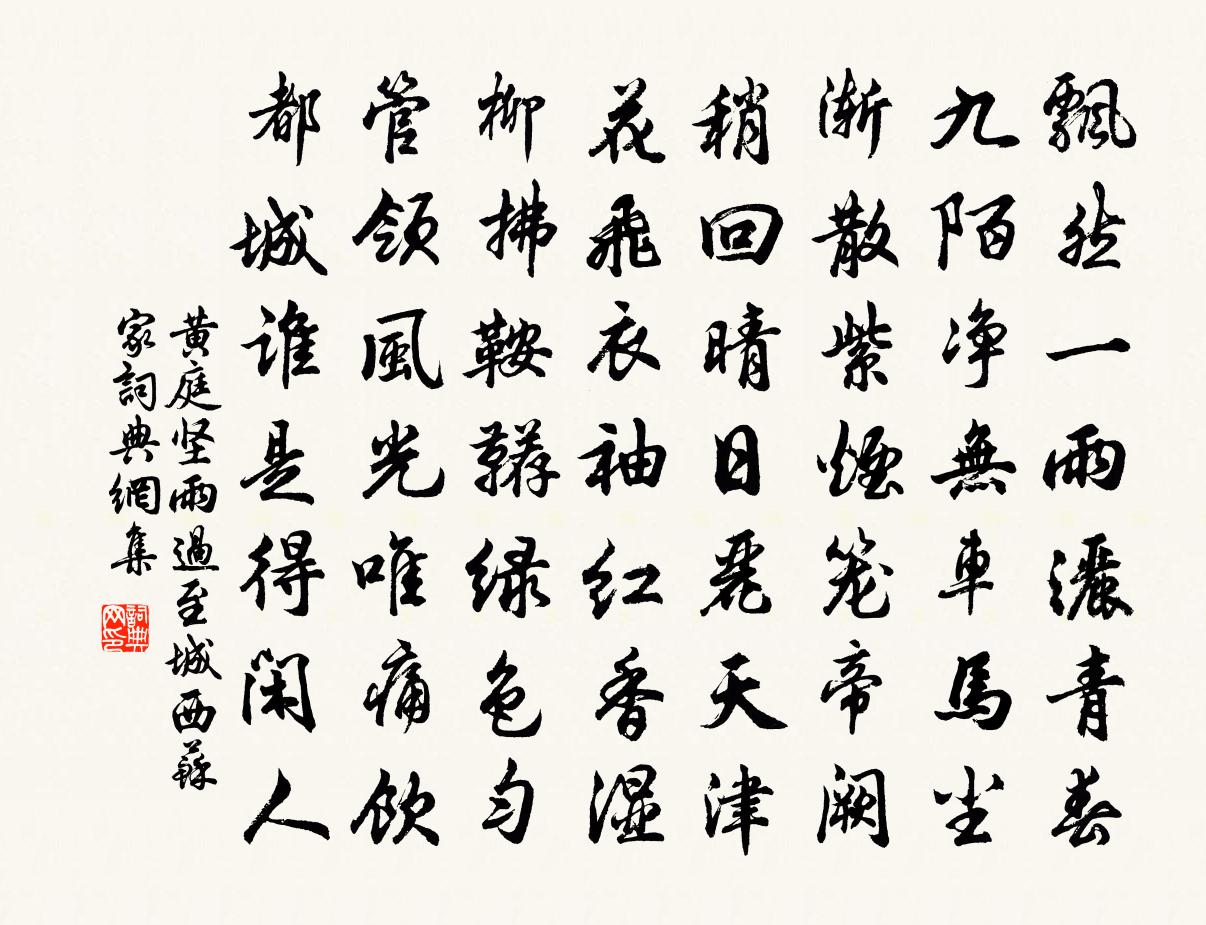 飄然一雨灑青春
九陌净無車馬尘
漸散紫煙笼帝阙
稍回晴日麗天津
花飛衣袖红香濕
柳拂鞍韉绿色匀
管领風光唯痛飲
都城谁是得闲人
黄庭坚雨過至城西蘇
家詞典網集
詞典网印